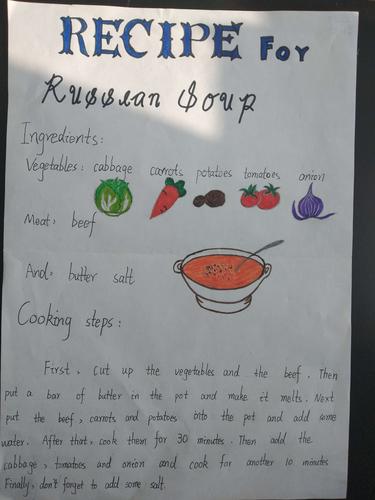 RECIPE For
Russian Soup
Ingredients:
Vegetables: cabbage carrots potatoes tomatoes onion
Meat: beef
And: butter salt
Cooking steps:
First, cut up the vegetables and the beef. Then
put a bar of butter in the pot and make it melts. Next
put the beef, carrots and potatoes into the pot and add some
water. After that, cook them for 30 minutes. Then add the
cabbage, tomatoes and onion and cook for another 10 minutes
Finally, don't forget to add some salt.